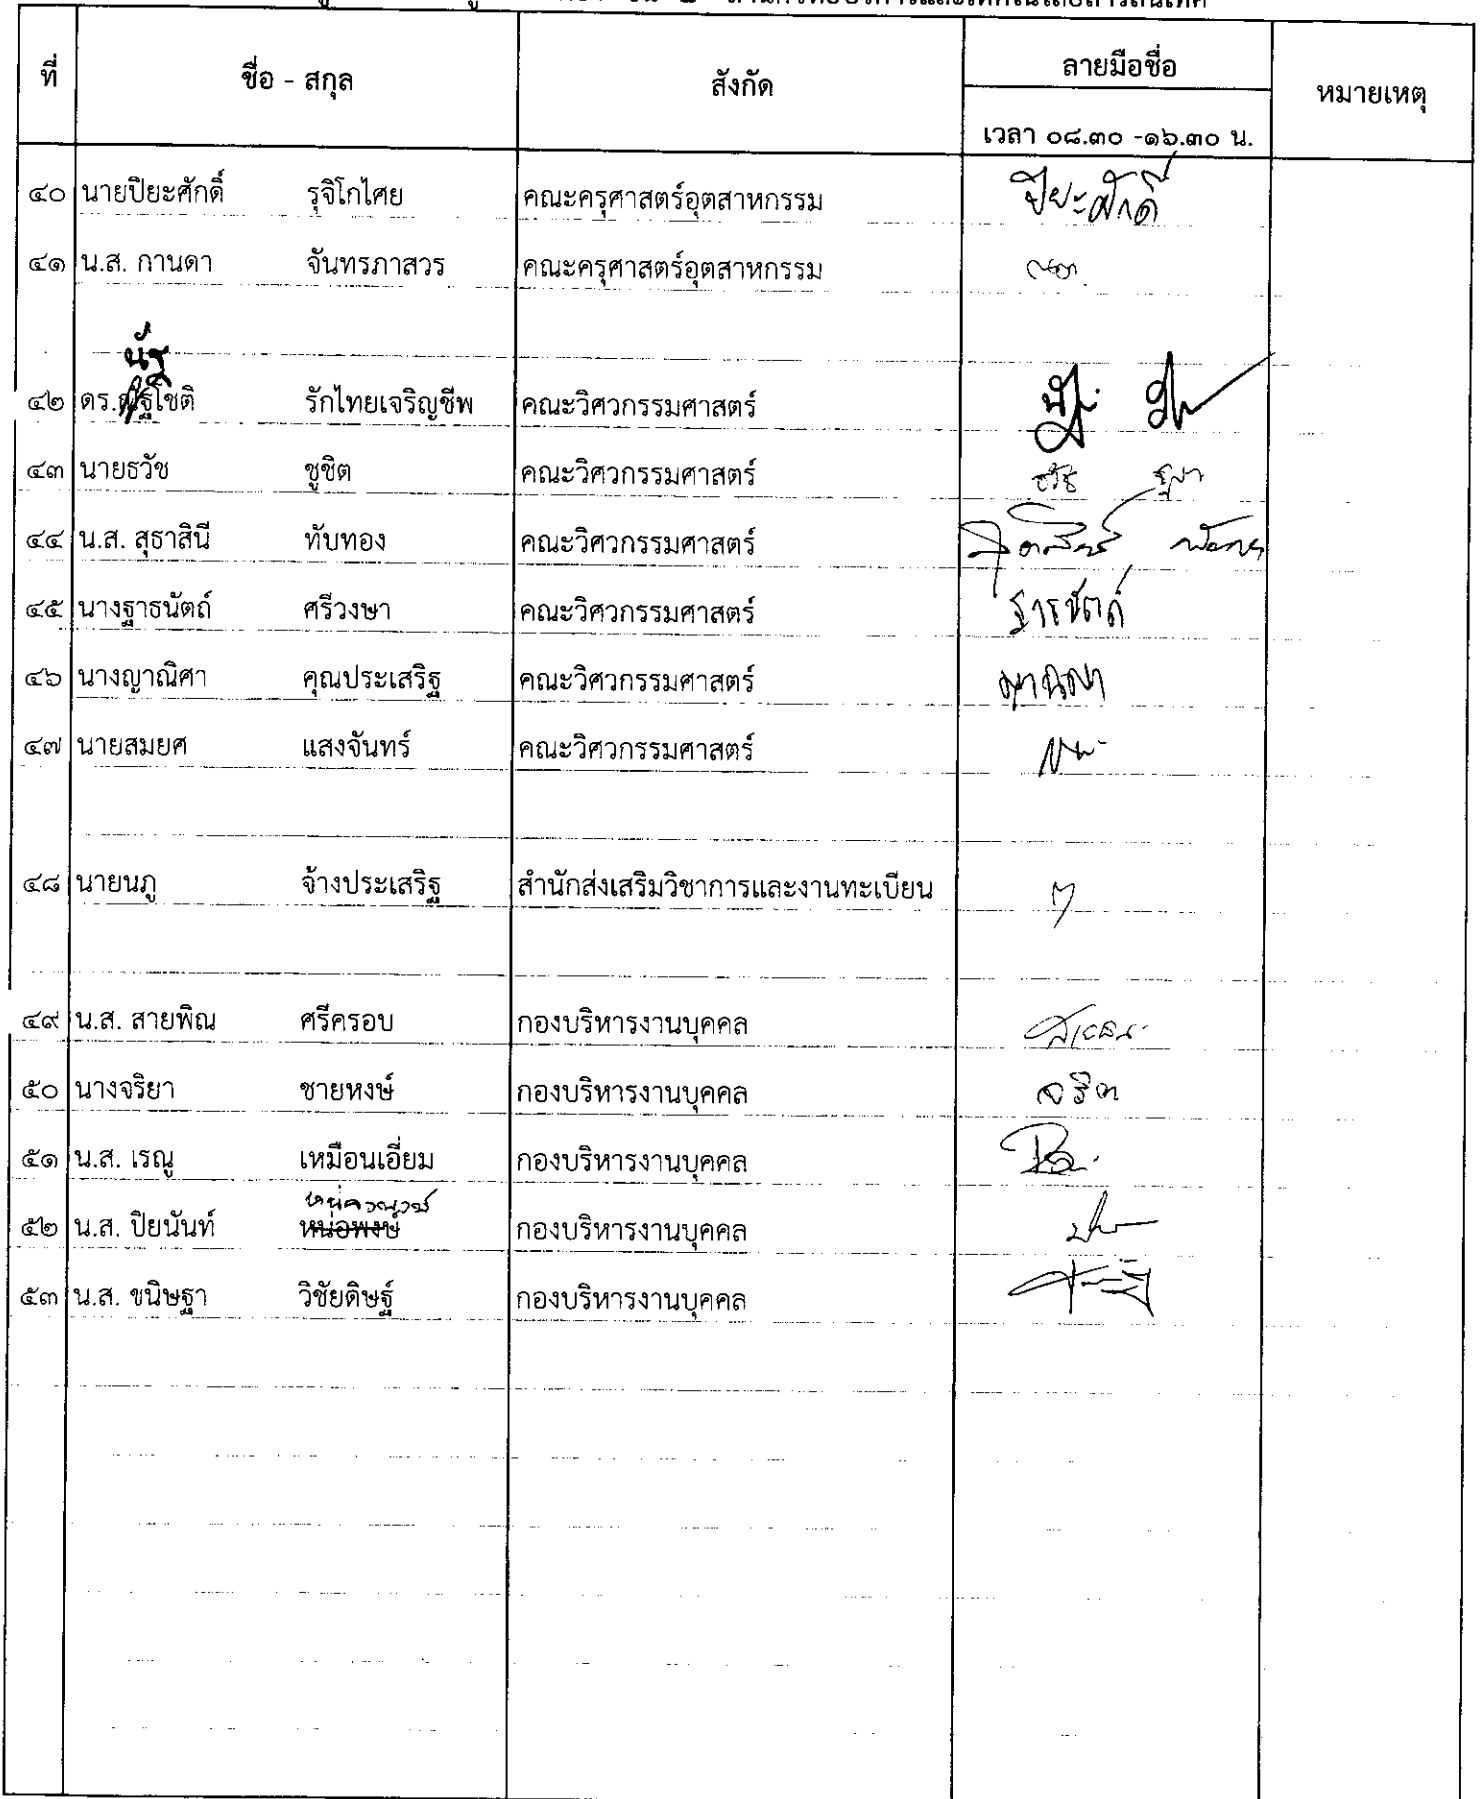 สำนักวิทยบริการและเทคโนโลยีสารสนเทศ
ที่ ชื่อ - สกุล สังกัด ลายมือชื่อ หมายเหตุ
เวลา ๐๘.๓๐ -๑๖.๓๐ น.
๔๐ นายปิยะศักดิ์ รุจิโกไศย คณะครุศาสตร์อุตสาหกรรม ปิยะศักดิ์
๔๑ น.ส. กานดา จันทรภาสวร คณะครุศาสตร์อุตสาหกรรม
นัฐ
๔๒ ดร.ณัฐโชติ รักไทยเจริญชีพ คณะวิศวกรรมศาสตร์
๔๓ นายธวัช ชูชิต คณะวิศวกรรมศาสตร์ ธวัช
๔๔ น.ส. สุธาสินี ทับทอง คณะวิศวกรรมศาสตร์
๔๕ นางฐาธนัตถ์ ศรีวงษา คณะวิศวกรรมศาสตร์ ฐาธนัตถ์
๔๖ นางญาณิศา คุณประเสริฐ คณะวิศวกรรมศาสตร์ ญาณิศา
๔๗ นายสมยศ แสงจันทร์ คณะวิศวกรรมศาสตร์
๔๘ นายนภู จ้างประเสริฐ สำนักส่งเสริมวิชาการและงานทะเบียน
๔๙ น.ส. สายพิณ ศรีครอบ กองบริหารงานบุคคล
๕๐ นางจริยา ชายหงษ์ กองบริหารงานบุคคล
๕๑ น.ส. เรณู เหมือนเอี่ยม กองบริหารงานบุคคล
๕๒ น.ส. ปิยนันท์ หน่อพงษ์ กองบริหารงานบุคคล
๕๓ น.ส. ขนิษฐา วิชัยดิษฐ์ กองบริหารงานบุคคล